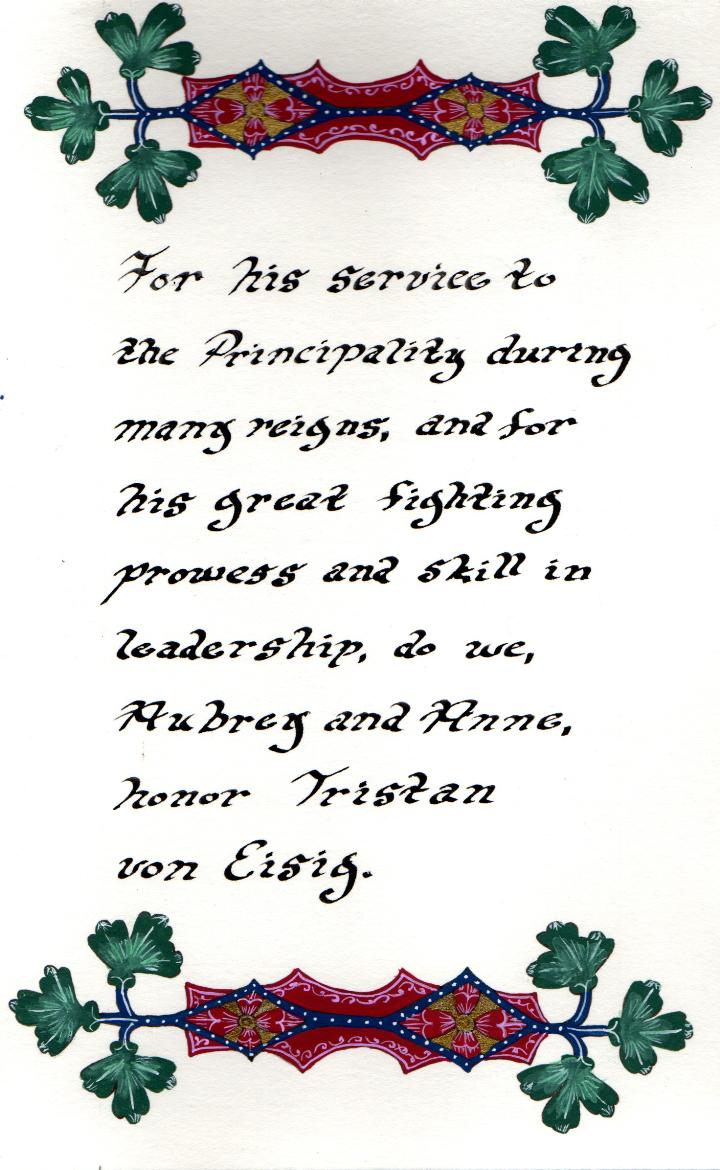 For his service to
the Principality during
many reigns, and for
his great fighting
prowess and skill in
leadership, do we,
Aubrey and Anne,
honor Tristan
von Eisig.